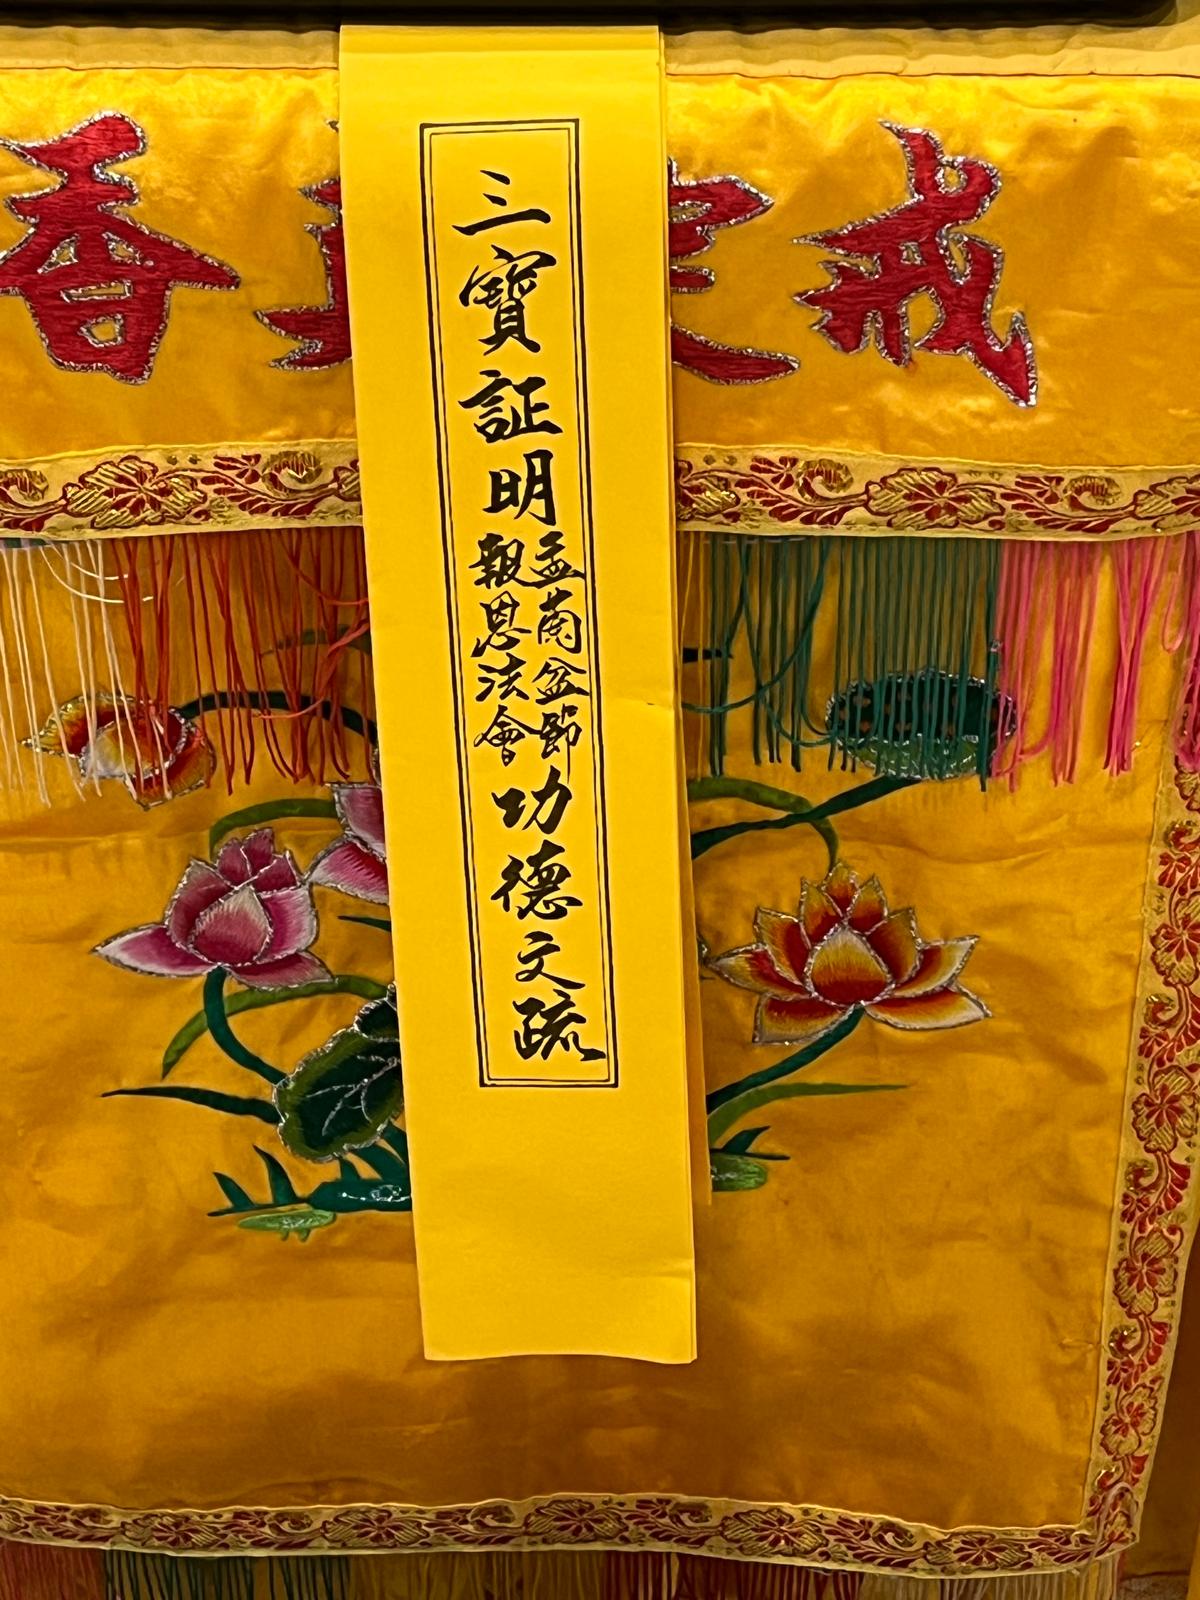 戒定真香
三寶証明
盂蘭盆節
報恩法會
功德文疏